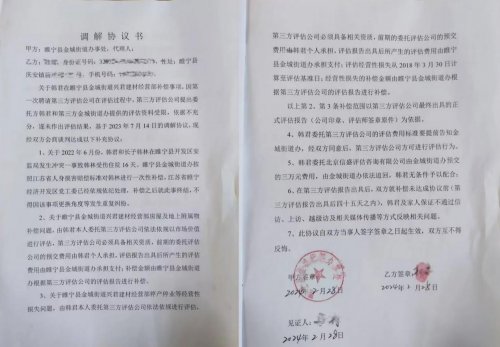 调解协议书
甲方:睢宁县金城街道办事处,代理人:
乙方: ,身份证号码: ,性别: ,住址:睢宁县
庆安镇 ,手机号码:
关于韩君在睢宁县金城街道兴君建材经营部补偿事项,因第
一次聘请第三方评估公司在评估过程中,第三方评估公司提出委
托方韩君和第三方金城街道办提供的评估资料受限,依据不充
分,迟未作出评估结果。基于2023年7月14日的调解协议,现
经双方会商谈判达成以下补充协议:
1、关于2022年6月份,韩君和长子韩林在睢宁县开发区安
监局发生冲突一事致韩林受伤住院16天,睢宁县金城街道办按
照江苏省人身损害赔偿标准对韩林进行一次性补偿,江苏省睢宁
经济开发区党工委已经依规依纪处理,补偿之后就此事终结,不
得因该事项更换角度等发生重复纠纷。
2、关于睢宁县金城街道兴君建材经营部房屋及地上附属物
补偿问题,由韩君本人委托第三方评估公司依法依规以市场价值
进行评估,第三方评估公司必须具备相关资质,前期的委托评估
公司的预交费用由韩君个人承担,评估报告出具后所产生的评估费
用由睢宁县金城街道办承担支付;补偿金额由睢宁县金城街道办
根据第三方评估公司的评估报告进行补偿。
3、关于睢宁县金城街道兴君建材经营部停产停业等经营性
损失问题,由韩君本人委托第三方评估公司依法依规进行评估,
第三方评估公司必须具备相关资质,前期的委托评估公司的预交
费用由韩君个人承担,评估报告出具后所产生的评估费用由睢宁县
金城街道办承担支付;评估经营性损失从2018年3月30日计
算至评估基准日;经营性损失的补偿金额由睢宁县金城街道办根
据第三方评估公司的评估报告进行补偿。
以上第2、第3条补偿范围以第三方评估公司最终出具的正
式评估报告(公司印章、评估师签章原件)为依据。
4、韩君委托第三方评估公司的评估费用标准要提前告知金
城街道办,经双方同意后,第三方评估公司方可进行评估行为。
5、韩君委托北京信盛评估咨询有限公司由金城街道办预交
的三万元费用,由金城街道办依法追回,韩君无条件予以配合;
6、在第三方评估报告出具后,双方就补偿未达成协议前(第
三方评估报告出具后四十五天之内),韩君及家人保证不通过信
访、上访、越级访及相关媒体传播等方式反映相关问题。
7、此协议自双方当事人签字签章之日起生效,双方互不得
反悔。
甲方签章:
乙方签章:
2024年2月28日
2024年2月28日
见证人:
2024年2月28日